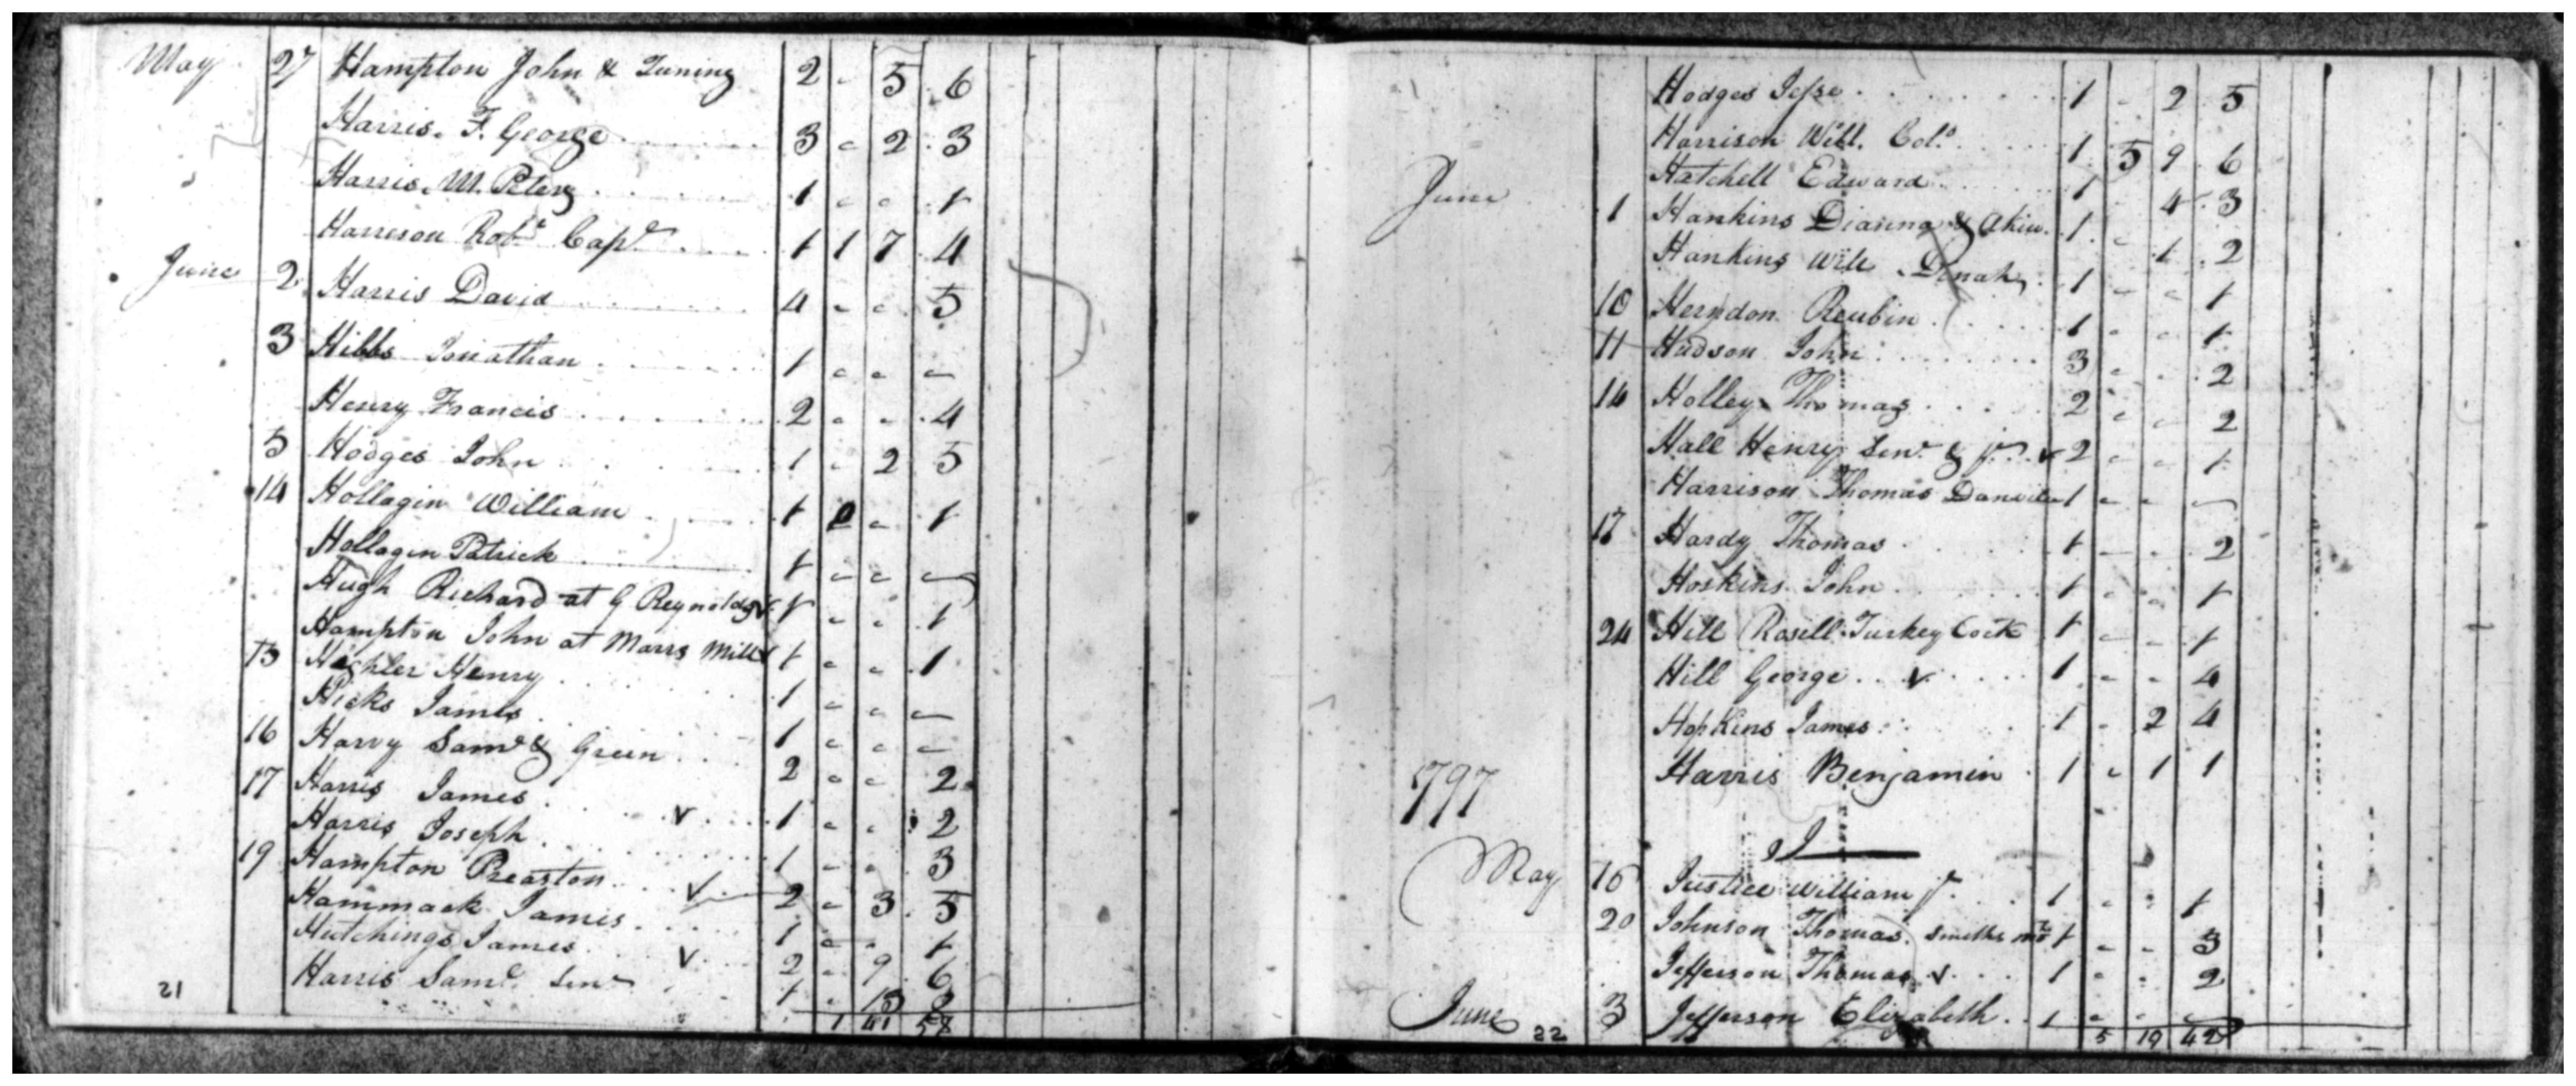 May 27 Hampton John & Tuning 2 - 5 6
Harris. F. George 3 - 2 3
Harris. M. Peter 1 - - 1
Harrison Robt Capt 1 1 7 4
June 2 Harris David 4 - - 5
3 Hibbs Jonathan 1 - - -
Henry Francis 2 - - 4
5 Hodges John 1 - 2 5
14 Hollagin William 1 0 - 1
Hollagin Patrick 1 - - -
Hugh Richard at G Reynolds v 1 - - 1
Hampton John at Marrs Mill 1 - - 1
15 Henry 1 - - -
Hicks James 1 - - -
16 Harvy Saml & Green 2 - - 2
17 Harris James v 1 - - 2
Harris Joseph 1 - - 3
19 Hampton Preaston v 2 - 3 5
Hammack James 1 - - 1
Hutchings James v 2 - 9 6
Harris Saml Senr 1 - 13 2
21 1 41 58
Hodges Jesse 1 - 2 5
Harrison Will. Colo 1 5 9 6
Hatchell Edward 1 4 3
June 1 Hankins Dianna & Akin. 1 - 1 2
Hankins Will Danah 1 - - 1
10 Herndon Reubin 1 - - 1
11 Hudson John 3 - - 2
14 Holley Thomas 2 - - 2
Hall Henry Senr & Jr v 2 - - 1
Harrison Thomas Danville 1 - - -
17 Hardy Thomas 1 - - 2
Hoskins John 1 - - 1
24 Hill Rosell Turkey Cock 1 - - 1
Hill George v 1 - - 4
Hopkins James 1 - 2 4
Harris Benjamin 1 - 1 1
797
J
May 16 Justice William Jr 1 - - 1
20 Johnson Thomas smiths mt 1 - - 3
Jefferson Thomas v 1 - - 2
June 3 Jefferson Elizabeth 1 - - -
22 5 19 42